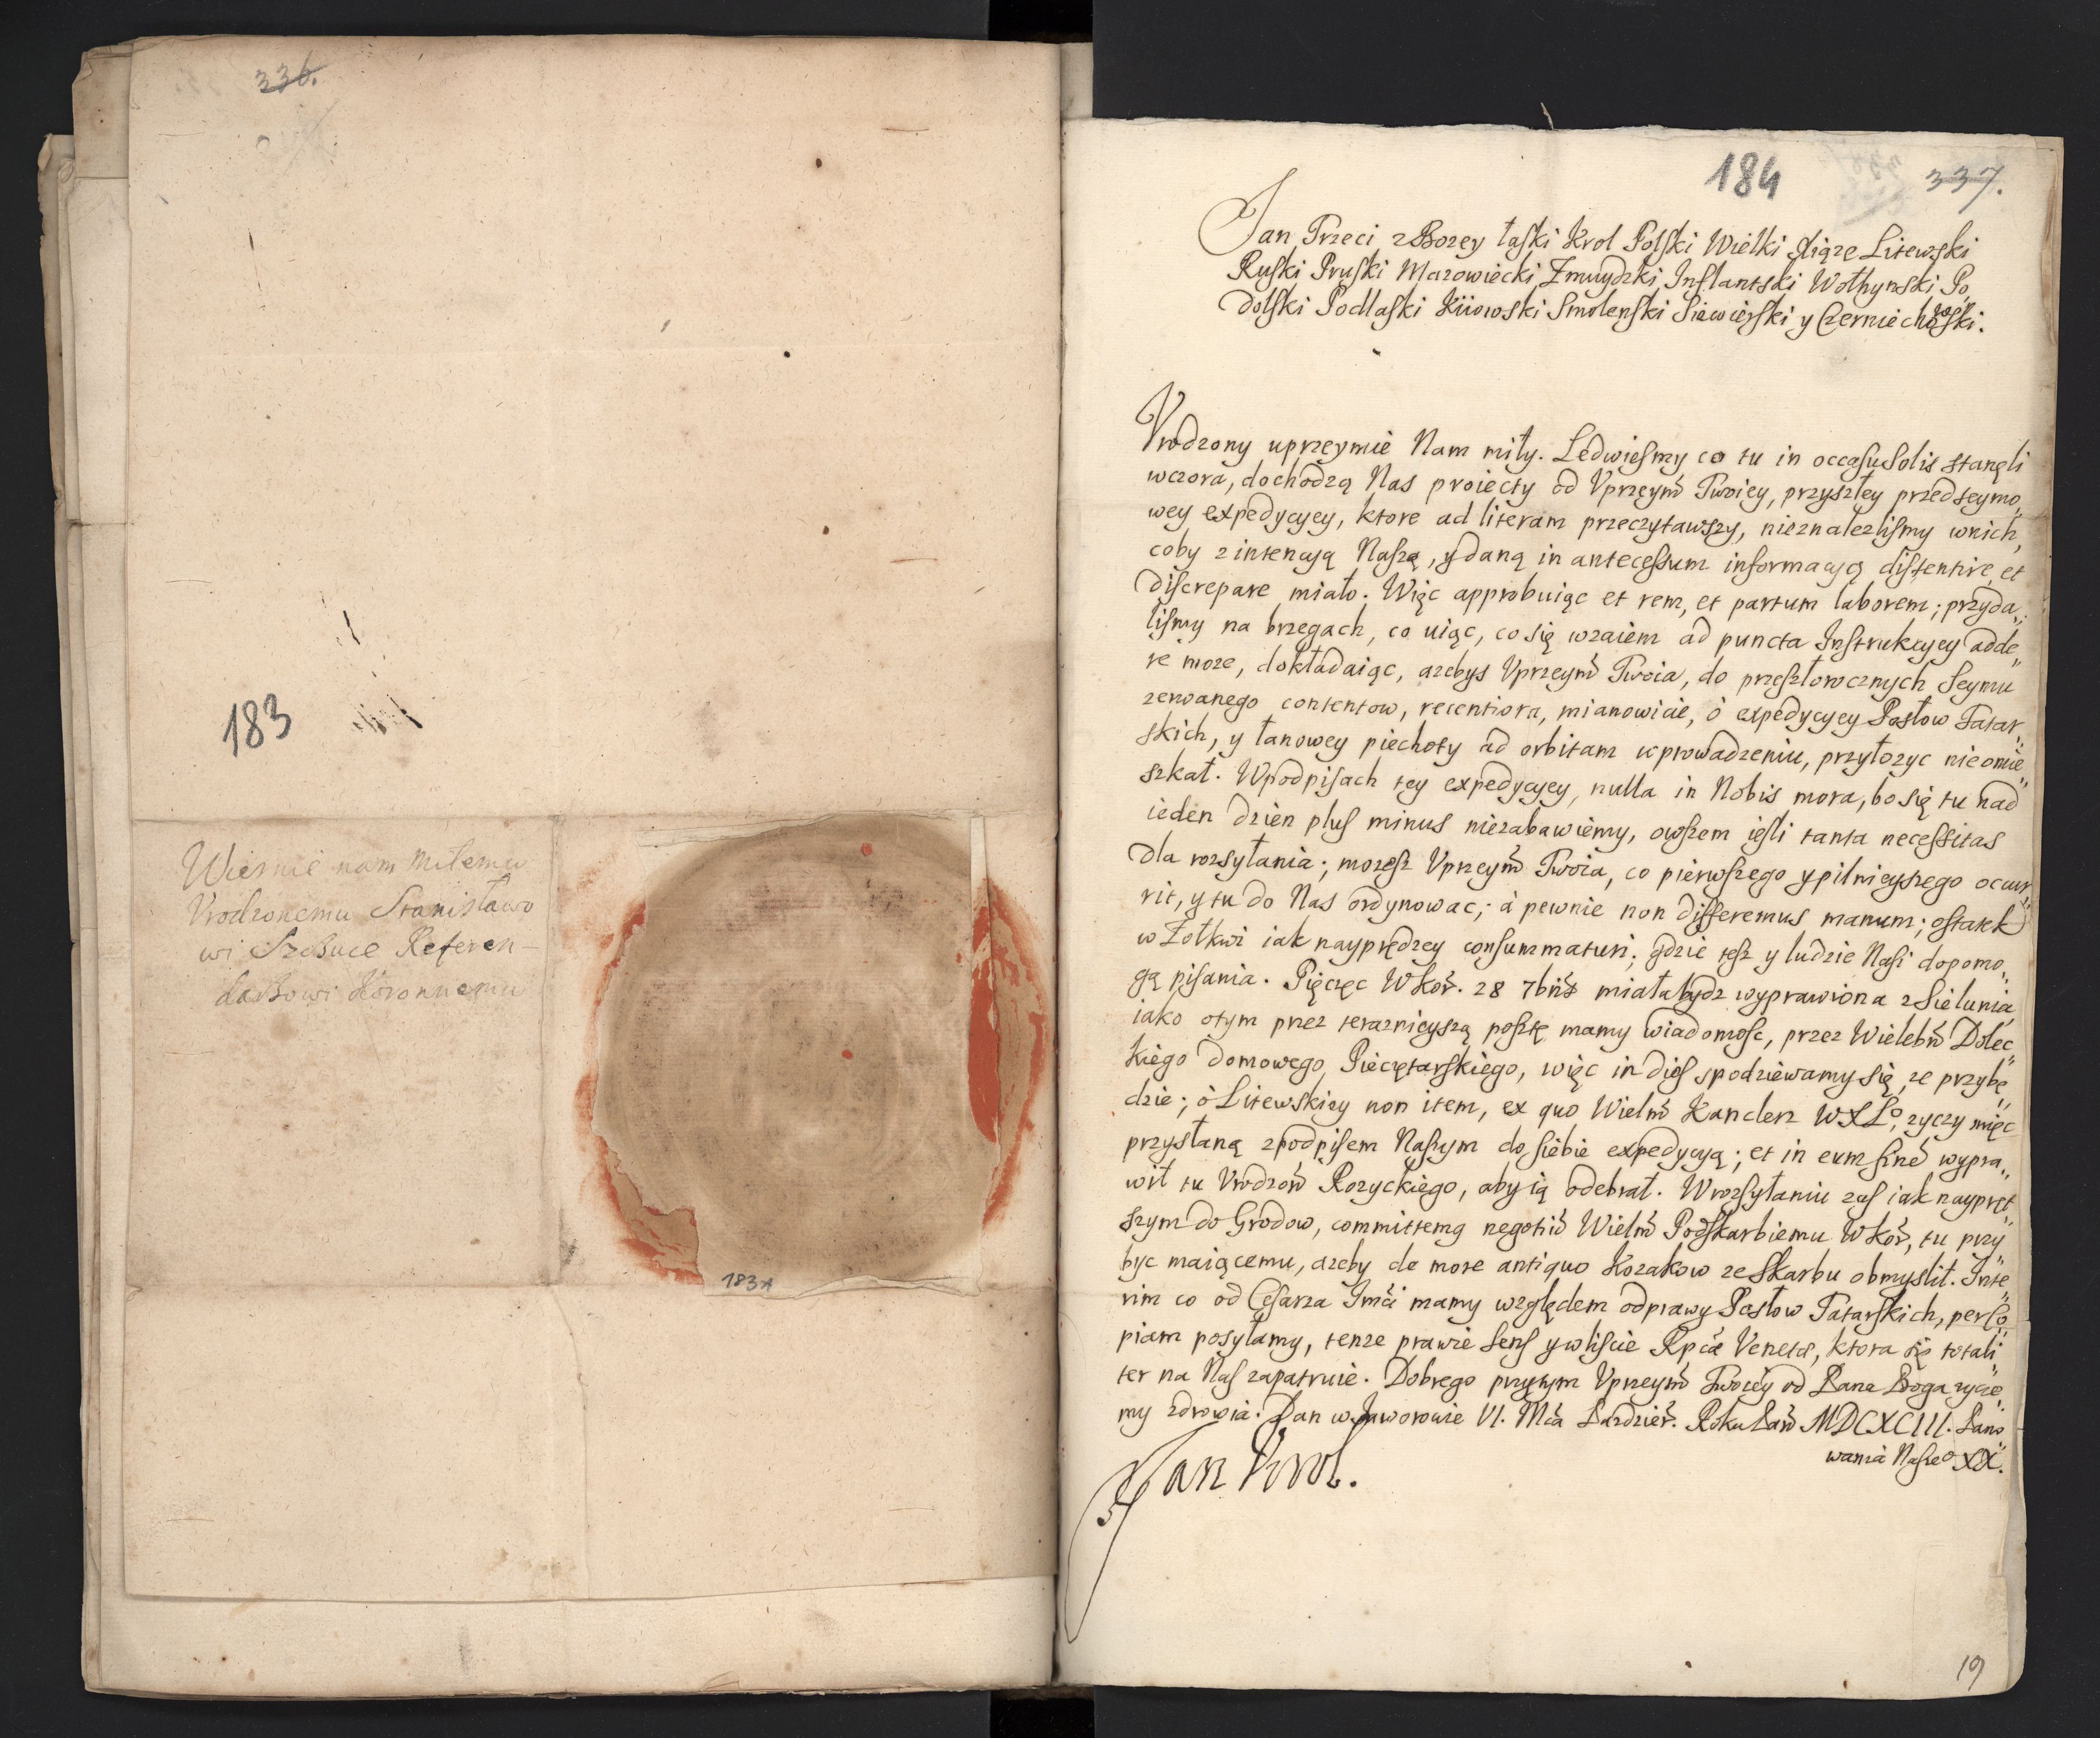 336.
183
Wiernie nam Miłemu
Vrodzonemu Stanisławo
wi Szczuce Referen-
darzowi Koronnemu
183A
184
337.
Jan Trzeci z Bozey łaski Krol Polski Wielki Xiąze Litewski
Ruski Pruski Mazowiecki Zmuydzki Inflantski Wołhynski Po„
dolski Podlaski Kiiowski Smolenski Siewierski y Czerniechowski.
Vrodzony uprzeymie Nam miły. Ledwiesmy co tu in occasu Solis stanęli
wczora, dochodzą Nas proiecty od Vprzeym̃ Twoiey, przyszłey przedseymo„
wey expedycyey, ktore ad literam przeczytawszy, nieznalezlismy wnich,
coby z intencyą Naszą, y daną in antecessum informacyą dissentire et
discrepare miało. Więc approbuiąc et rem, et partum laborem; przyda„
lismy na brzegach, co uiąc, co się wzaiem ad puncta Instrukcyey adde„
re moze, dokładaiąc, azebys Vprzeym̃ Twoia, do przeszłorocznych Seymu
zerwanego contentow, recentiora, mianowicie, ó expedycyey Posłow Tatar„
skich, y łanowey piechoty ad orbitam wprowadzeniu, przyłozyc nieomie„
szkał. Wpodpisach tey expedycyey, nulla in Nobis mora, bo się tu nad
ieden dzien plus minus niezabawiemy, owszem iesli tanta necessitas
dla rozsyłania; mozesz Vprzeym̃ Twoia, co pierwszego y pilnieyszego occur„
rit, y tu do Nas ordynowac; á pewnie non differemus manum; ostatek
w Zołkwi iak nayprędzey consummaturi; gdzie tesz y ludzie Nasi dopomo„
gą pisania. Pięczęc Wkor̃. 28 7bris miała bydz wyprawiona z Sielunia,
iako otym przez teraznieyszą posztę mamy wiadomosc, przez Wielebñ Dolec„
kiego domowego Pieczętarskiego, więc in dies spodziewamy się, ze przybę„
dzie; ó Litewskiey non item, ex quo Wielm̃ Kanclerz WXLo, zyczy miec
przysłaną z podpisem Naszym do siebie expedycyą; et in eum finẽ wypra„
wił tu Vrodzoñ Rozyckiego, aby ią odebrał. W rozsyłaniu zas iak naypręt„
szym do Grodow, committemg negotiũ Wielm̃ Podskarbiemu Wkor̃, tu przy„
byc maiącemu, azeby de more antiquo Kozakow ze Skarbu obmyslił. Inte„
rim co od Cesarza Jmći mamy względem odprawy Posłow Tatarskich, per co„
piam posyłamy, tenze prawie sens y wliscie Rpcæ Venetæ, ktora się totali„
ter na Nas zapatruie. Dobrego przytym Vprzeym̃ Twoiey od Pana Boga zycze„
my zdrowia. Dan w Jaworowie VI. Mca Pazdzier̃. Roku Pań MDCXCIII. Pano„
wania Naszeo XX.
Jan Krol.
19